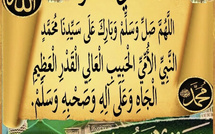 الله
اللَّهُمَّ صَلِّ وَسَلِّمْ وَبَارِكْ عَلَى سَيِّدِنَا مُحَمَّدٍ
النَّبِيِّ الأُمِّيِّ الْحَبِيبِ الْعَالِي الْقَدْرِ الْعَظِيمِ
الْجَاهِ وَعَلَى آلِهِ وَصَحْبِهِ وَسَلِّمْ.
محمد